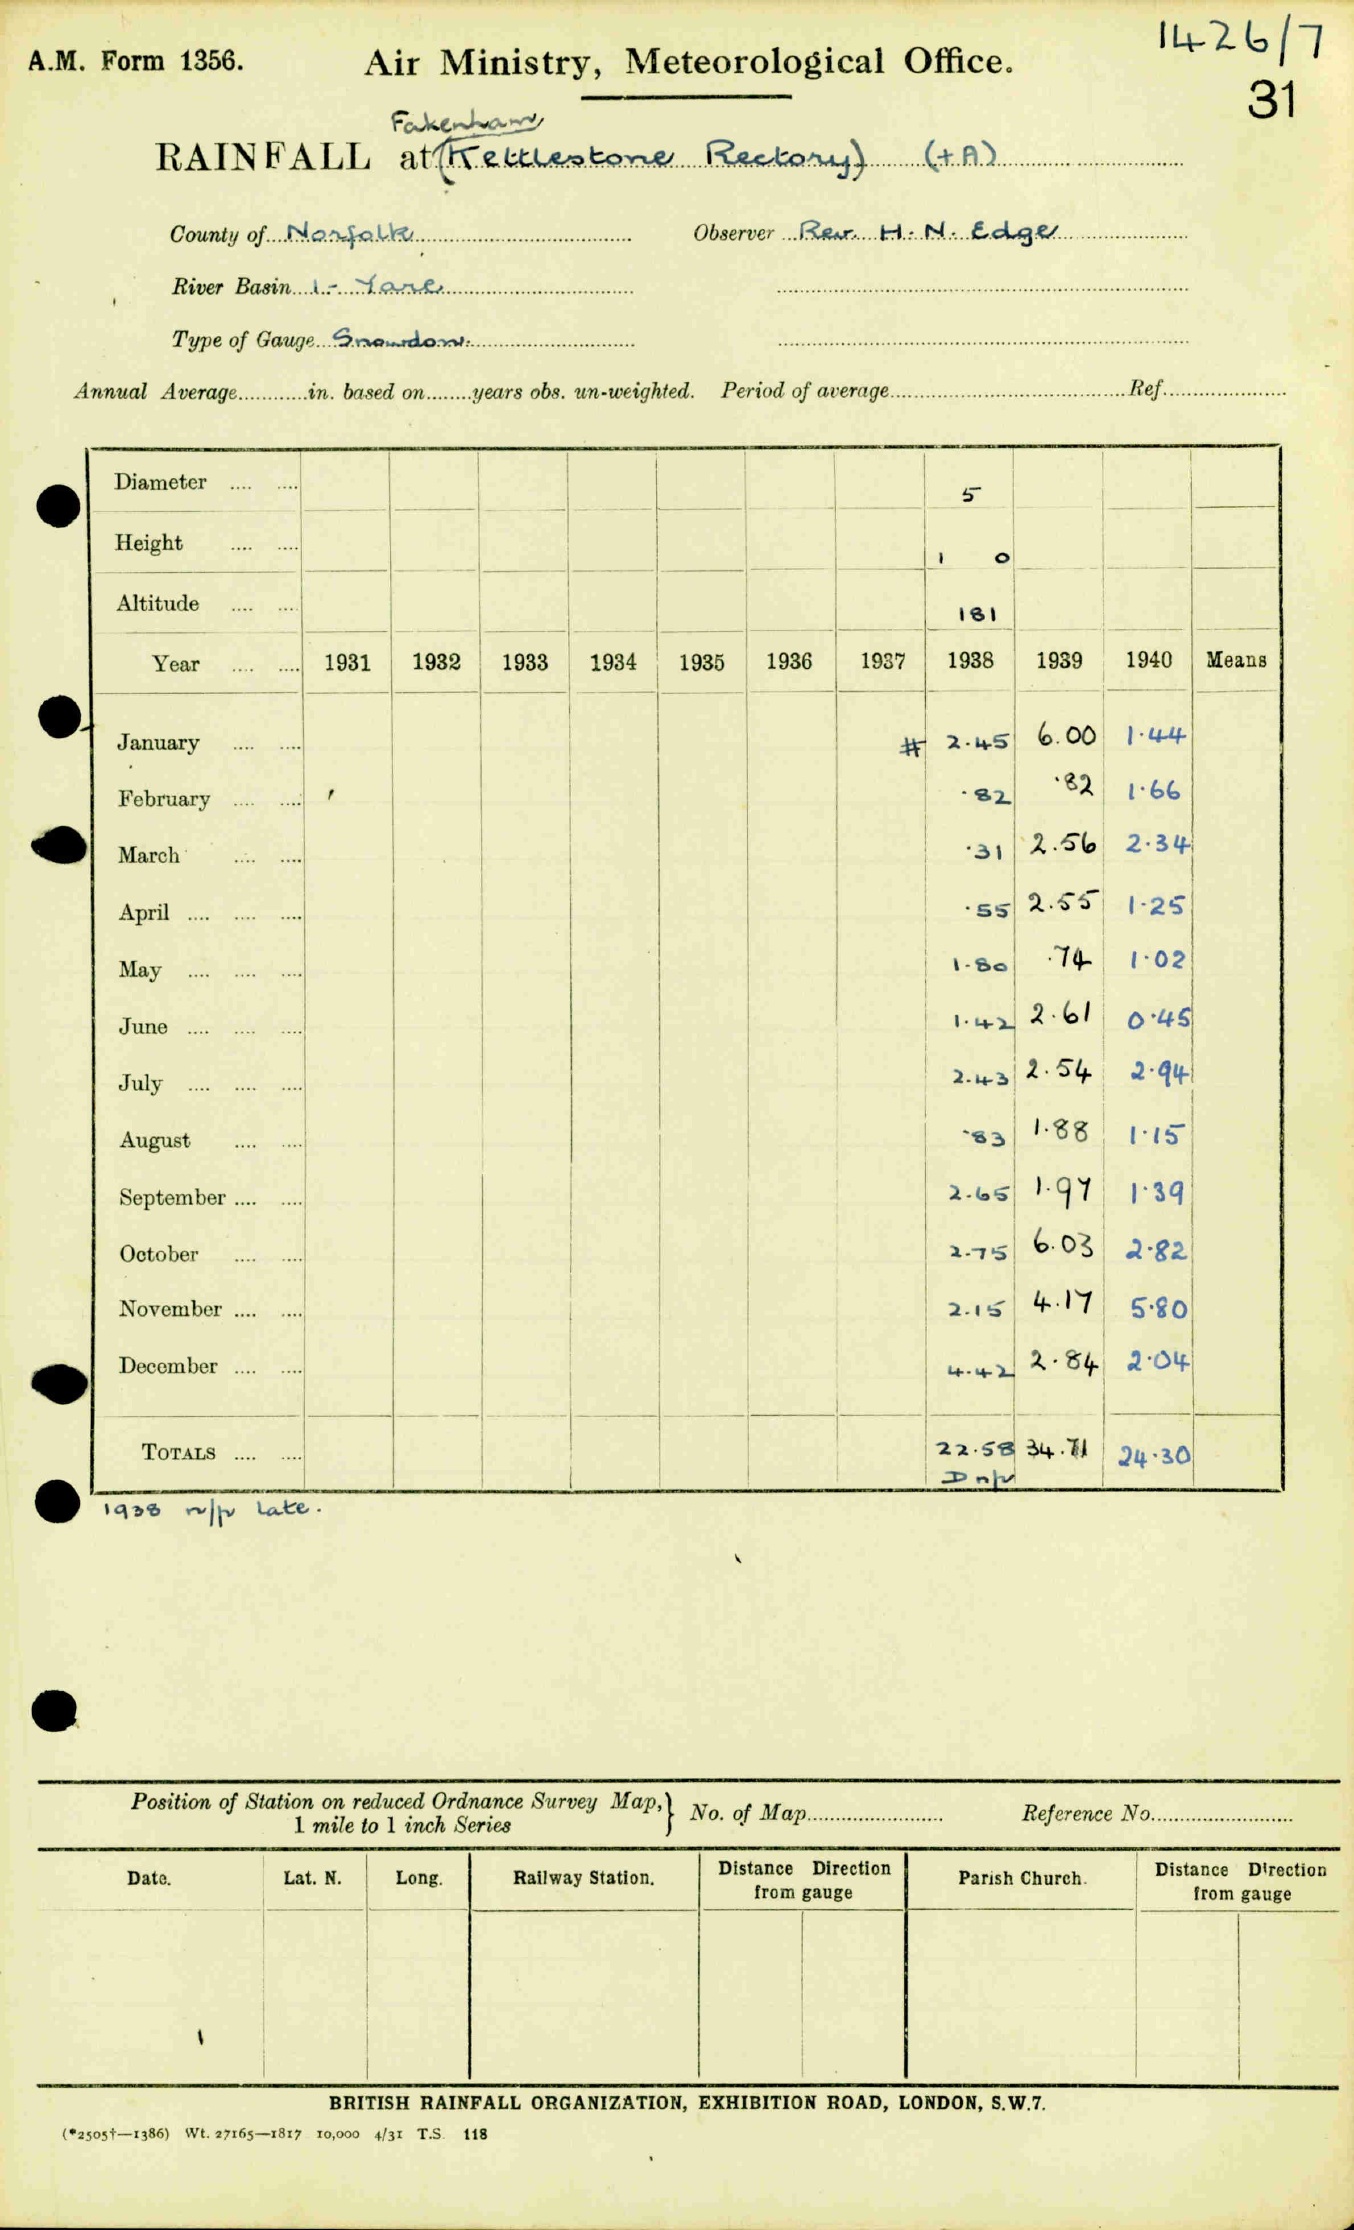 1426/7
A.M. Form 1356. Air Ministry, Meteorological Office.
31
Fakenham
RAINFALL at (Kettlestone Rectory) (+A)
County of Norfolk Observer Rev. H. N. Edge
River Basin 1 - Yare
Type of Gauge Snowdon.
Annual Average............in. based on........years obs. un-weighted. Period of average.................... Ref....................
Diameter .... .... 5
Height .... .... 1 0
Altitude .... .... 181
Year .... .... 1931 1932 1933 1934 1935 1936 1937 1938 1939 1940 Means
January .... .... # 2.45 6.00 1.44
February .... .... .82 .82 1.66
March .... .... .31 2.56 2.34
April .... .... .... .55 2.55 1.25
May .... .... .... 1.80 .74 1.02
June .... .... .... 1.42 2.61 0.45
July .... .... .... 2.43 2.54 2.94
August .... .... .83 1.88 1.15
September .... .... 2.65 1.97 1.39
October .... .... 2.75 6.03 2.82
November .... .... 2.15 4.17 5.80
December .... .... 4.42 2.84 2.04
TOTALS .... .... 22.58 34.71 24.30
1938 n/p late.
Position of Station on reduced Ordnance Survey Map, } No. of Map........................ Reference No.........................
1 mile to 1 inch Series
Date. Lat. N. Long. Railway Station. Distance Direction Parish Church. Distance Direction
from gauge from gauge
BRITISH RAINFALL ORGANIZATION, EXHIBITION ROAD, LONDON, S.W.7.
(*2505†—1386) Wt. 27165—1817 10,000 4/31 T.S. 118